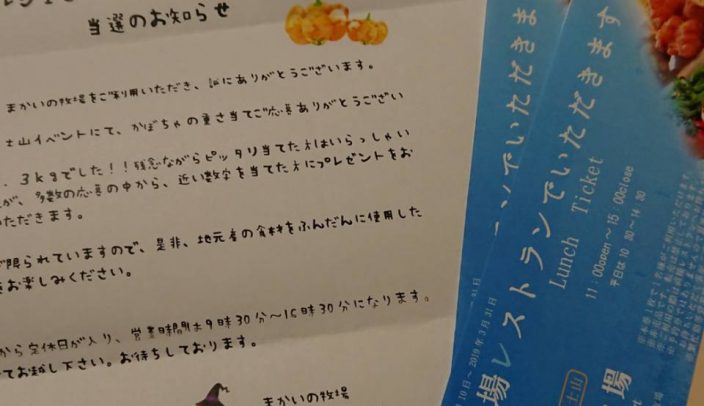 当選のお知らせ
まかいの牧場をご利用いただき、誠にありがとうございます。
士山イベントにて、かぼちゃの重さ当てご応募ありがとうござい
3kgでした！！残念ながらピッタリ当てた方はいらっしゃい
が、多数の応募の中から、近い数字を当てた方にプレゼントをお
いただきます。
が限られていますので、是非、地元産の食材をふんだんに使用した
お楽しみください。
から定休日が入り、営業時間は9時30分～16時30分になります。
てお越し下さい。お待ちしております。
まかいの牧場
ンでいただきま
場レストランでいただきます
Lunch Ticket
11：00open～15：00close
平日は10：30～14：30
月10日～2019年3月31日
31日
場
士山